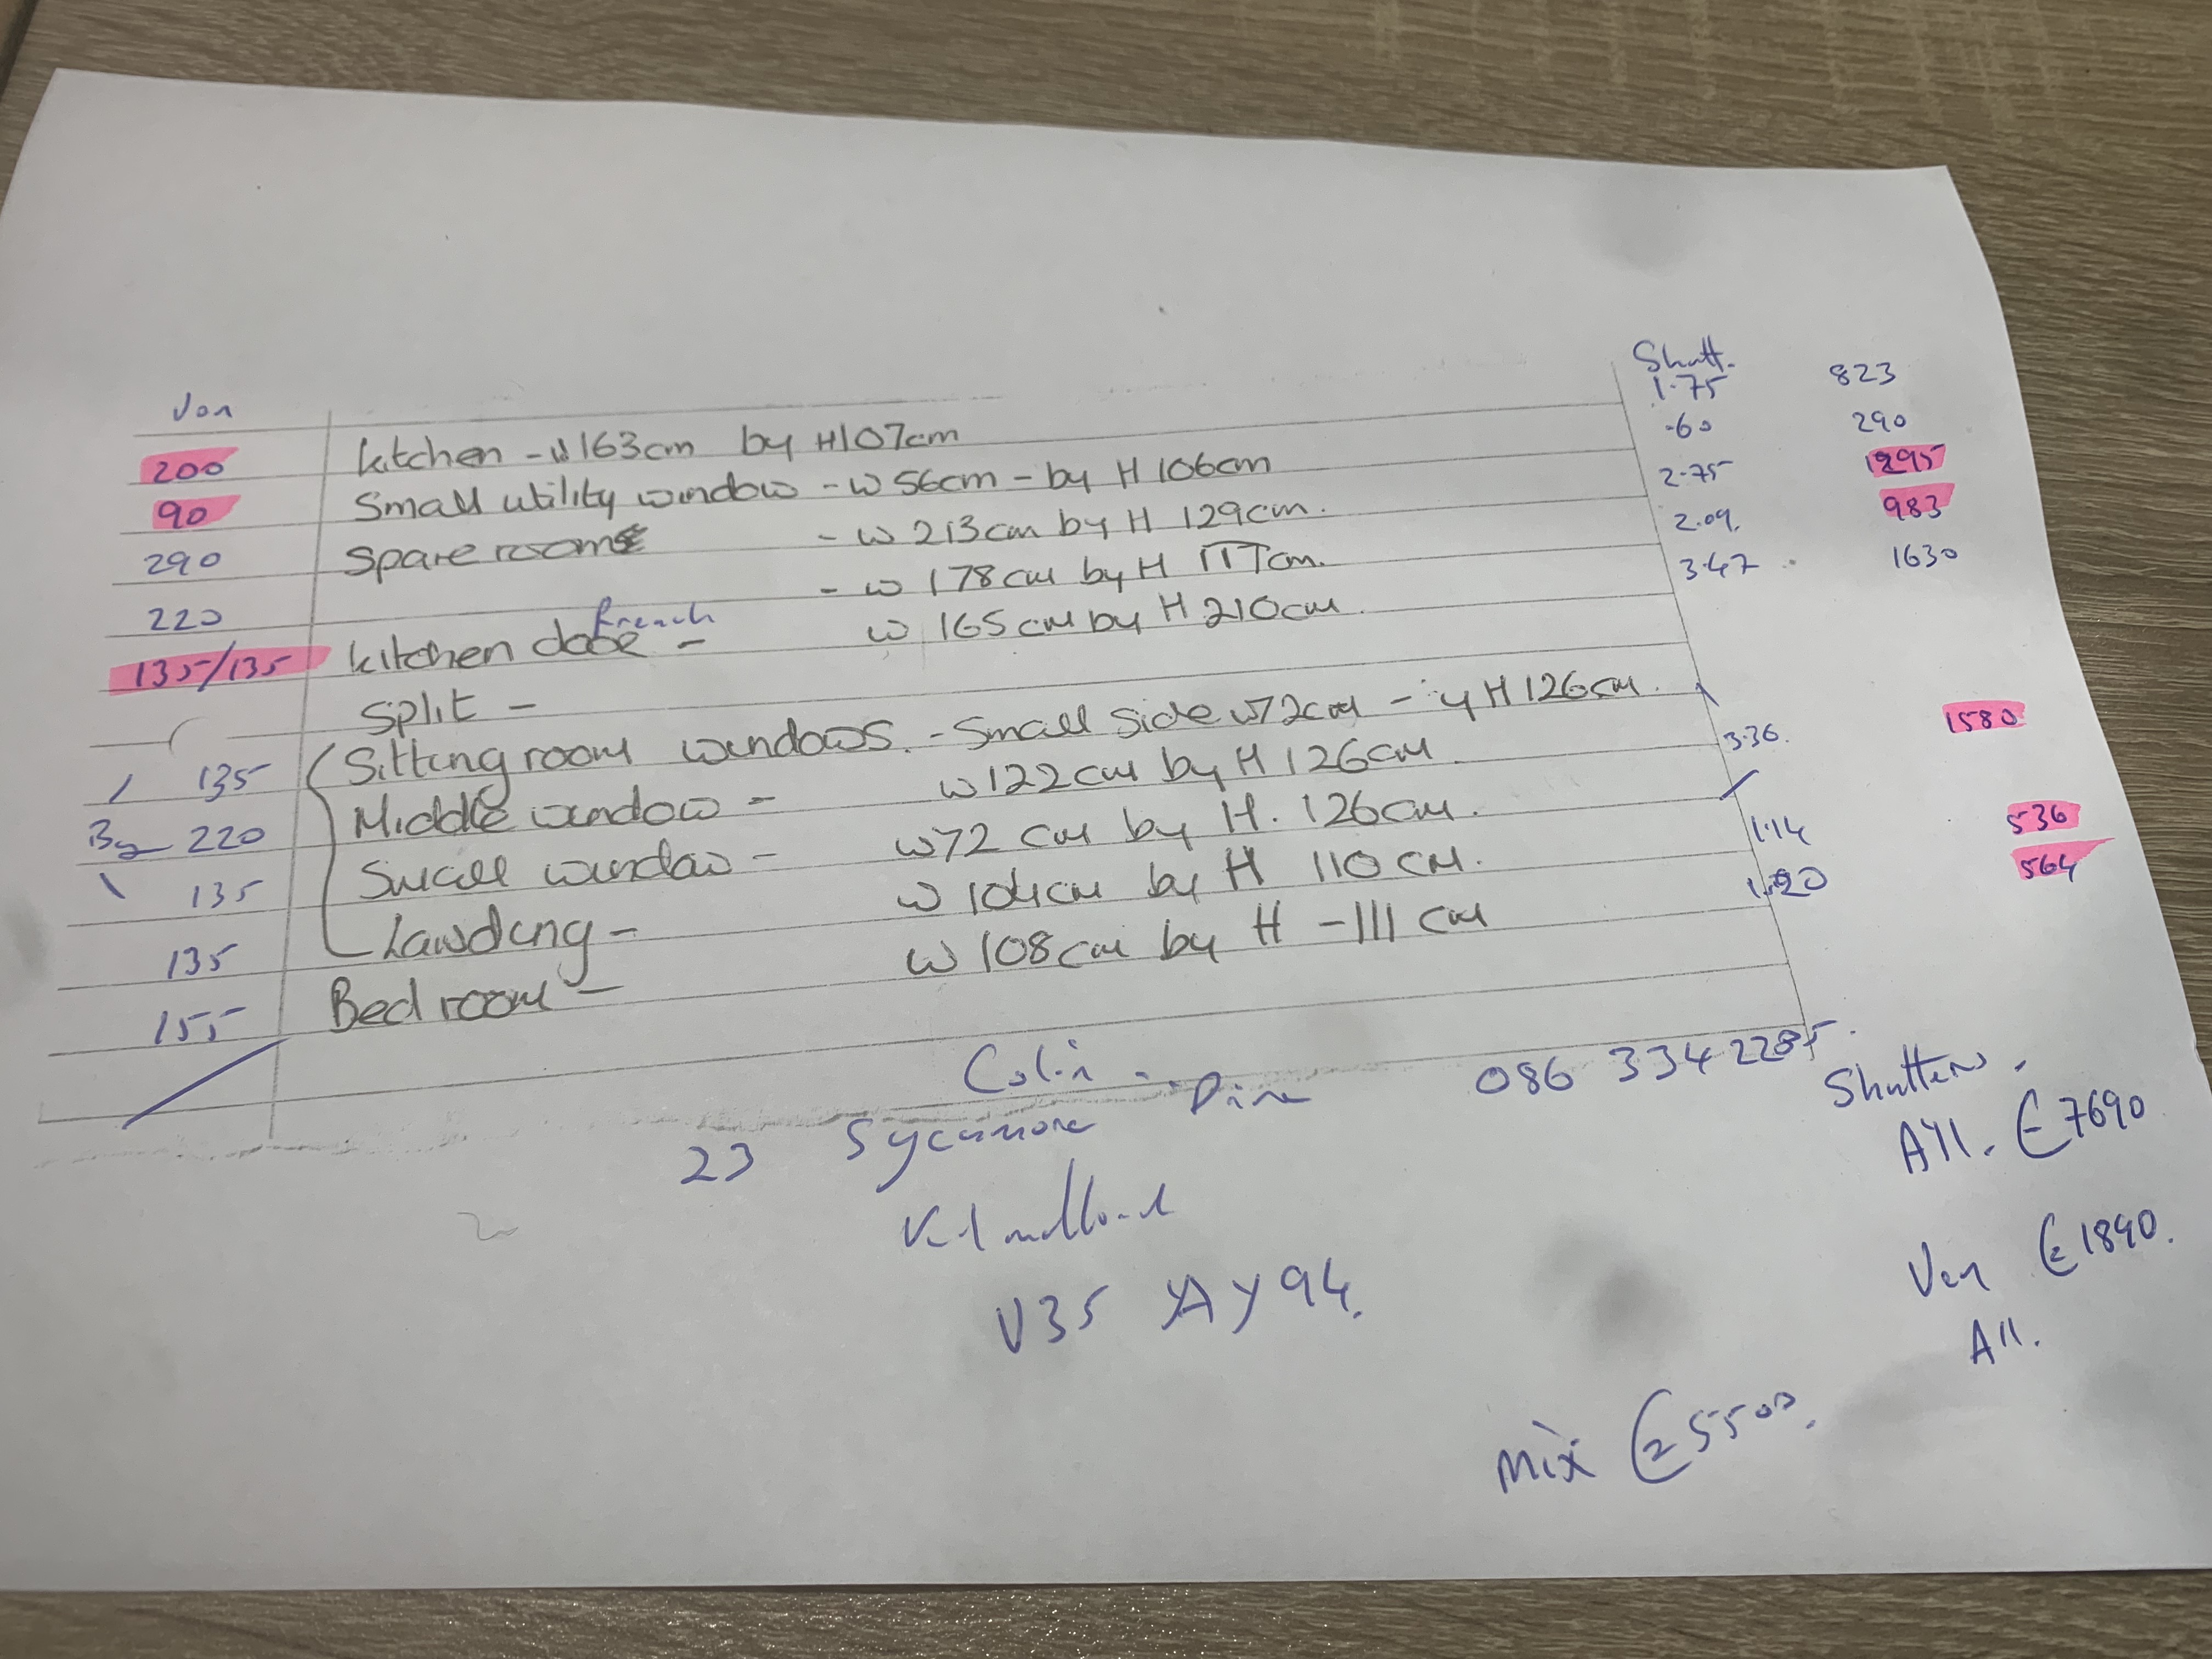 Ven Shutt.
200 Kitchen - W 163cm by H107cm 1.75 823
90 Small utility window - W 56cm - by H 106cm .60 290
290 Spare rooms - W 213cm by H 129cm. 2.75 1295
220 - W 178cm by H 117cm. 2.09. 983
135/135 Kitchen door French - W 165cm by H 210cm. 3.47 1630
Split -
135 Sitting room windows. - Small side W72cm - by H 126cm.
Bay 220 Middle window - W122cm by H 126cm. 3.36. 1580
135 Small window - W72 cm by H. 126cm.
135 Landing - W 104cm by H 110 CM. 1.14 536
155 Bedroom - W 108cm by H - 111 cm 1.20 564
Colin - 086 334 2285.
23 Sycamore Drive
Kilmallock
V35 AY94.
Shutters.
All. €7690
Ven €1840.
All.
Mix €5500.